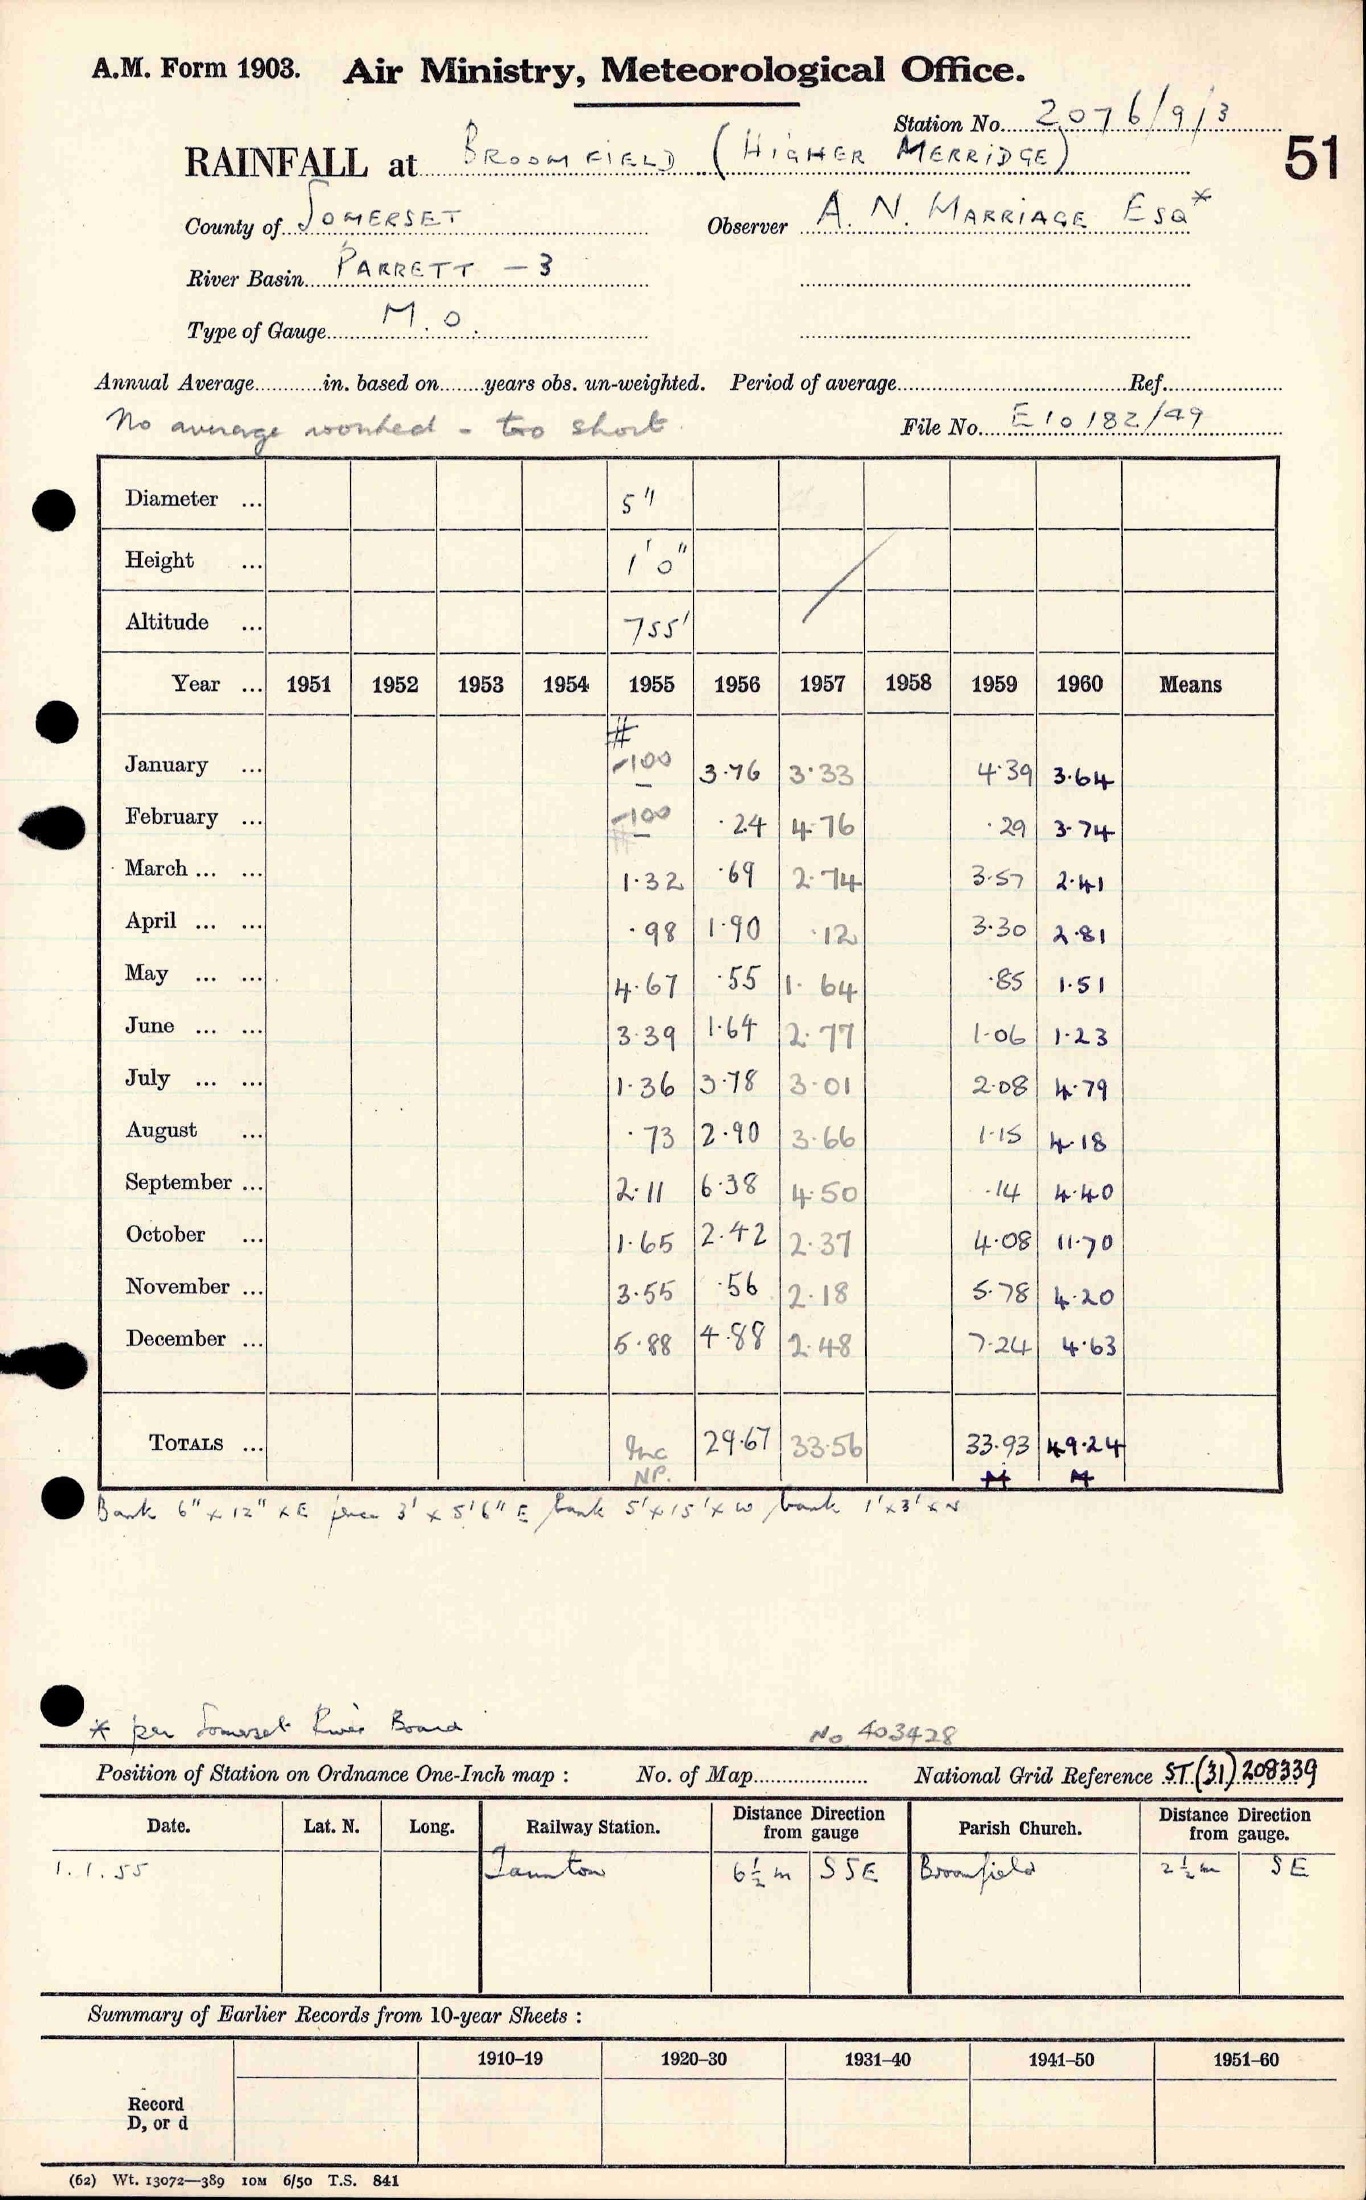 A.M. Form 1903. Air Ministry, Meteorological Office.
Station No. 2076/9/3
RAINFALL at BROOMFIELD (HIGHER MERRIDGE)
51
County of SOMERSET Observer A. N. MARRIAGE ESQ*
River Basin PARRETT - 3
Type of Gauge M.O.
Annual Average in. based on years obs. un-weighted. Period of average Ref.
No average worked - too short
File No. E10182/49
Diameter ... 5"
Height ... 1'0"
Altitude ... 755'
Year ... 1951 1952 1953 1954 1955 1956 1957 1958 1959 1960 Means
#
January ... -100 3.76 3.33 4.39 3.64
February ... -100 .24 4.76 .29 3.74
#
March ... ... 1.32 .69 2.74 3.57 2.41
April ... ... .98 1.90 .12 3.30 2.81
May ... ... 4.67 .55 1.64 .85 1.51
June ... ... 3.39 1.64 2.77 1.06 1.23
July ... ... 1.36 3.78 3.01 2.08 4.79
August ... .73 2.90 3.66 1.15 4.18
September ... 2.11 6.38 4.50 .14 4.40
October ... 1.65 2.42 2.37 4.08 11.70
November ... 3.55 .56 2.18 5.78 4.20
December ... 5.88 4.88 2.48 7.24 4.63
TOTALS ... Inc 29.67 33.56 33.93 49.24
NP. M M
Bank 6" x 12" x E fence 3' x 5'6" E bank 5' x 15' x W bank 1' x 3' x N
* per Somerset River Board
No 403428
Position of Station on Ordnance One-Inch map : No. of Map National Grid Reference ST(31)208339
Date. Lat. N. Long. Railway Station. Distance Direction from gauge Parish Church. Distance Direction from gauge.
1.1.55 Taunton 6½ m SSE Broomfield 2½ m SE
Summary of Earlier Records from 10-year Sheets :
1910–19 1920–30 1931–40 1941–50 1951–60
Record
D, or d
(62) Wt. 13072—389 10M 6/50 T.S. 841